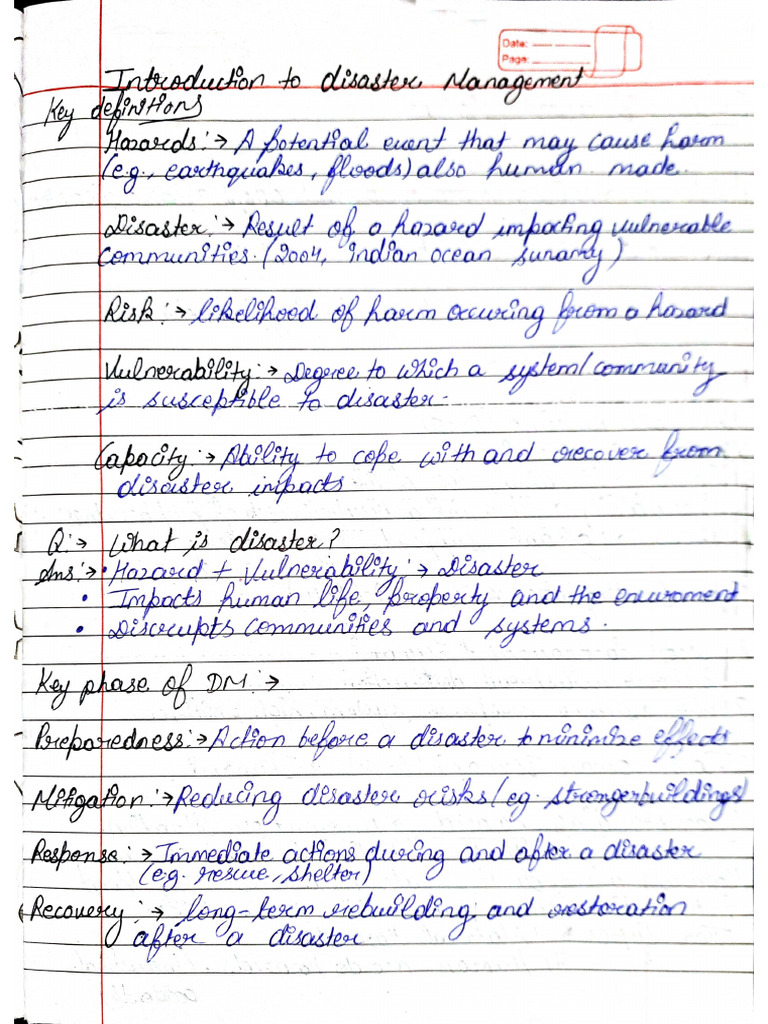 Date:
Page:
Introduction to disaster Management
Key definitions
Hazards:→ A potential event that may cause harm
(e.g., earthquakes, floods) also human made.
Disaster:→ Result of a hazard impacting vulnerable
communities. (2004, indian ocean sunamy)
Risk:→ likelihood of harm occuring from a hazard
Vulnerability:→ Degree to which a system/community
is susceptible to disaster.
Capacity:→ Ability to cope with and recover from
disaster impacts.
Q:→ What is disaster?
Ans:→ • Hazard + Vulnerability:→ Disaster
• Impacts human life, property and the enviroment
• Discrupts communities and systems.
Key phase of DM:→
Preparedness:→ Action before a disaster to minimize effects
Mitigation:→ Reducing disaster risks (eg. stronger buildings)
Response:→ Immediate actions during and after a disaster
(e.g. rescue, shelter)
Recovery:→ long-term rebuilding and restoration
after a disaster.